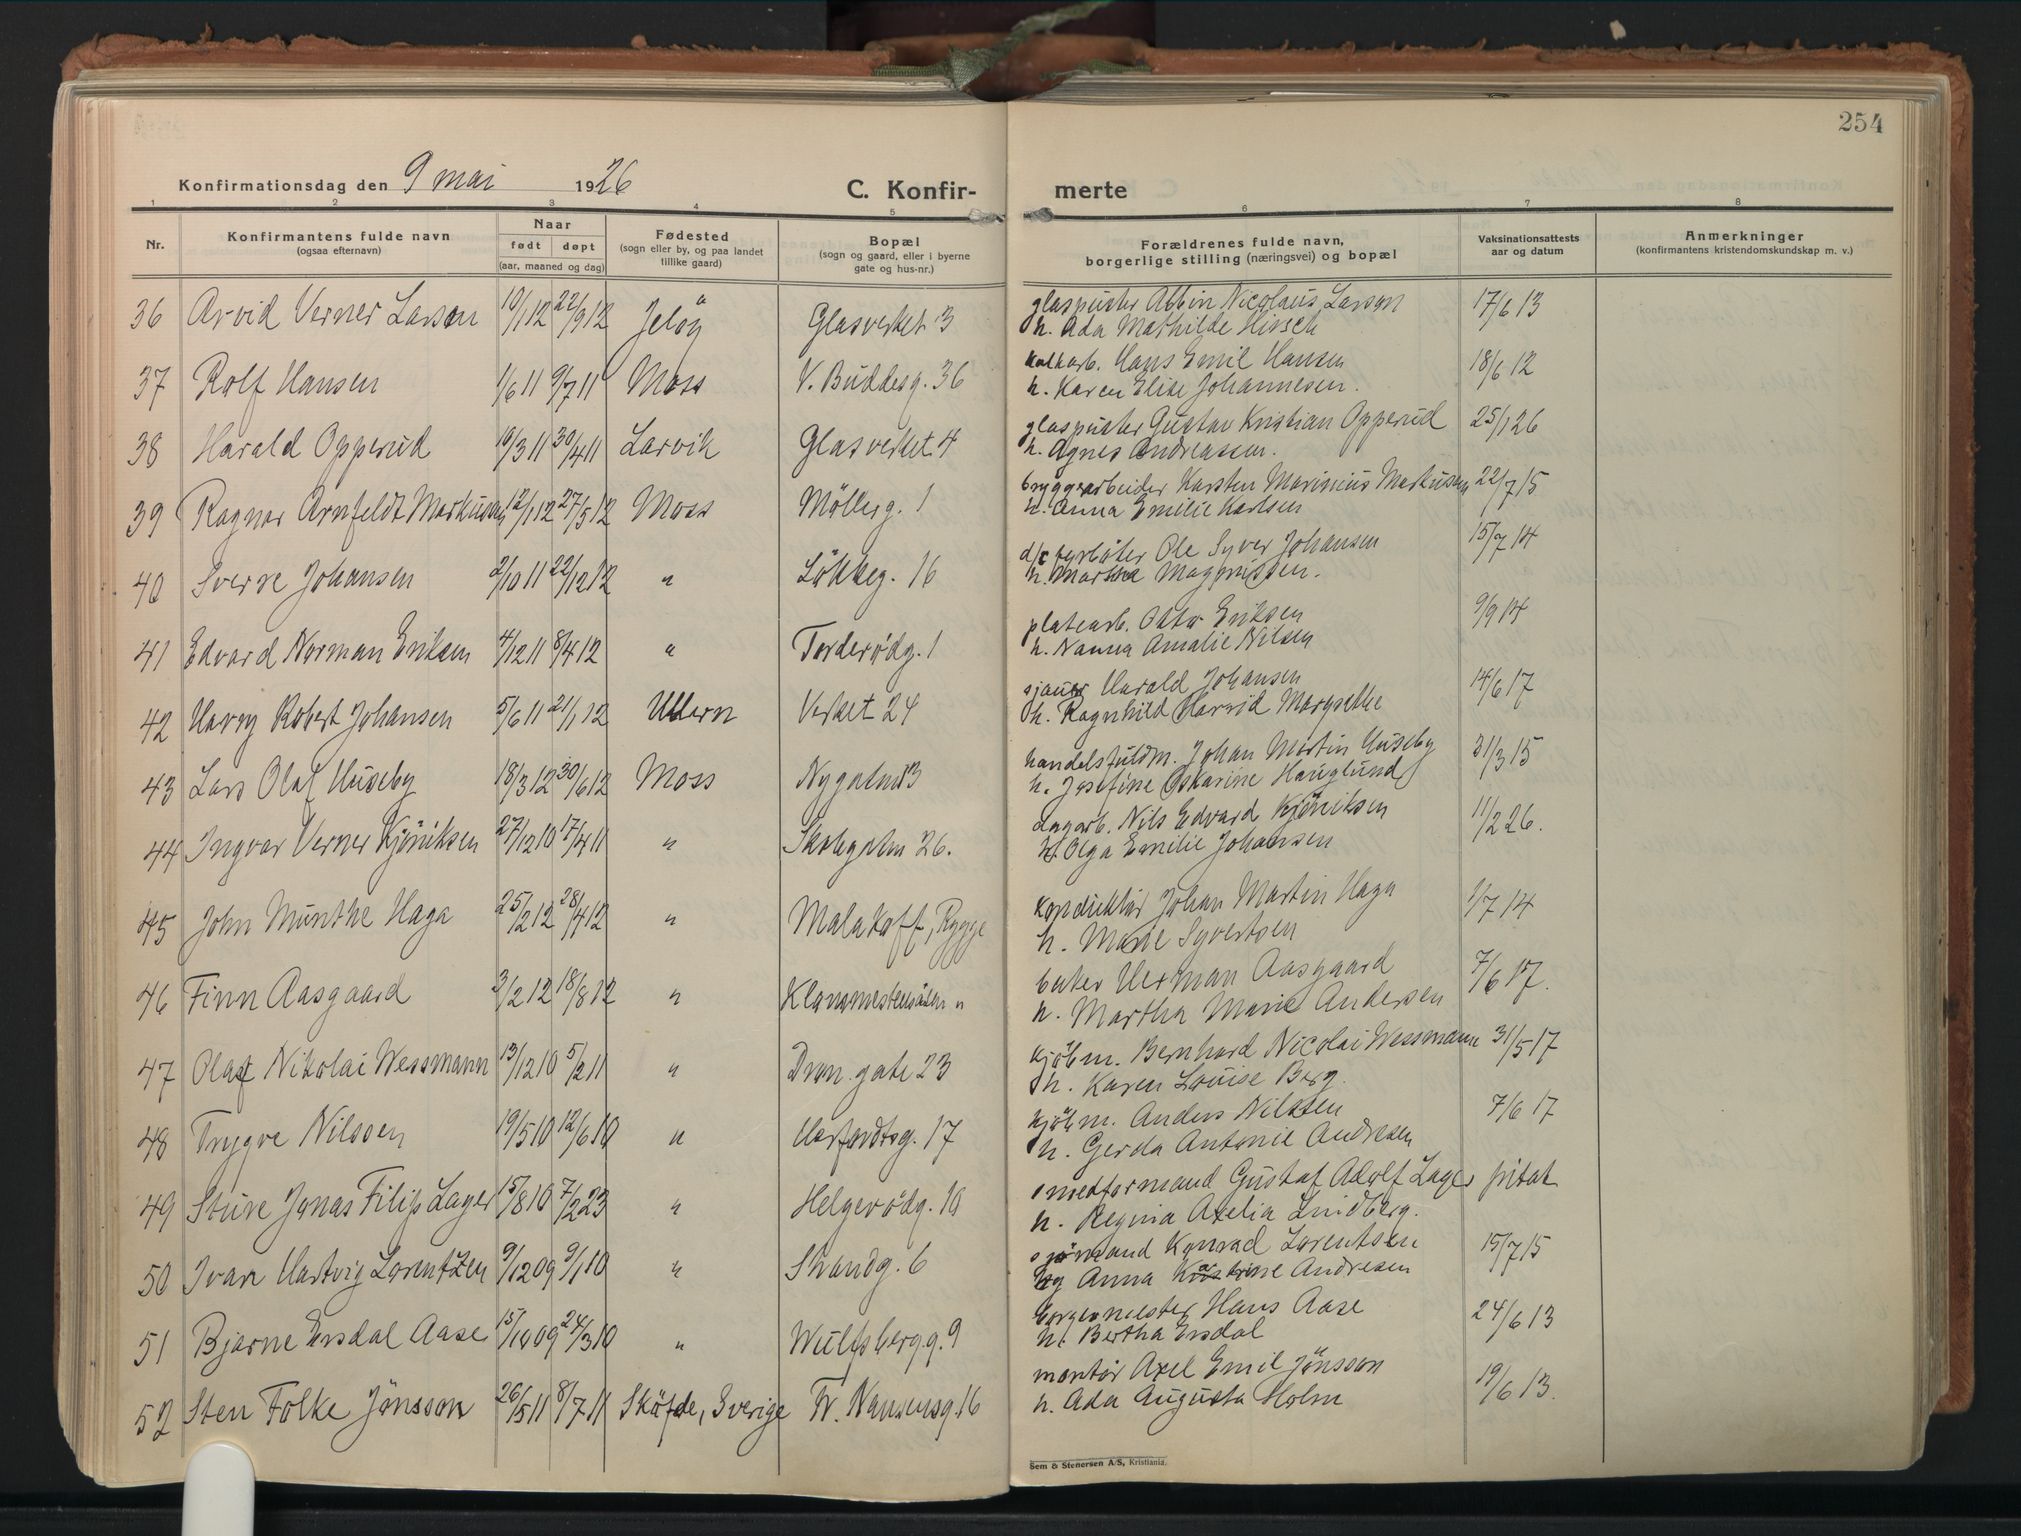 254
Konfirmationsdag den 9 mai 1926
C. Konfirmerte
1 2 3 4 5 6 7 8
Nr.
Konfirmantens fulde navn
(ogsaa efternavn)
Naar
født døpt
(aar, maaned og dag)
Fødested
(sogn eller by, og paa landet
tillike gaard)
Bopæl
(sogn og gaard, eller i byerne
gate og hus-nr.)
Forældrenes fulde navn,
borgerlige stilling (næringsvei) og bopæl
Vaksinationsattests
aar og datum
Anmerkninger
(konfirmantens kristendomskundskap m. v.)
36 Arvid Verner Larson 10/1 12 22/9 12 Jeløy Glasverket 3 glaspuster Albin Nicolaus Larson 17/6 13
h. Ada Mathilde Hirsch
37 Rolf Hansen 1/6 11 9/7 11 Moss V. Buddesg. 36 kalkarb. Hans Emil Hansen 18/6 12
h. Karen Elise Johannesen.
38 Harald Opperud 10/3 11 30/4 11 Larvik Glasverket 4 glaspuster Gustav Kristian Opperud 25/1 26
h. Agnes Andreassen.
39 Ragnar Arnfeldt Markusen 12/1 12 27/5 12 Moss Møllerg. 1 bryggearbeider Karsten Marinius Markusen 22/7 15
h. Anna Emilie Karlsen
40 Sverre Johansen 2/10 11 22/12 12 " Løkkeg. 16 fyrbøter Ole Syver Johansen 15/7 14
h. Marthe Magnussen.
41 Edvard Norman Eriksen 4/12 11 8/4 12 " Torderødg. 1 platearb. Otto Eriksen 9/9 14
h. Nanna Amalie Nilsen
42 Harry Robert Johansen 5/6 11 21/1 12 Ullern Verket 24 sjauer Harald Johansen 14/6 17
h. Ragnhild Margrethe
43 Lars Olaf Huseby 18/3 12 30/6 12 Moss Nygaten 13 handelsfuldm. Johan Martin Huseby 31/3 15
h. Josefine Oskarine Hauglund
44 Ingvar Verner Kjöniksen 27/12 10 17/4 11 " Skolegaten 26. dagarb. Nils Edvard Kjöniksen 11/2 26.
h. Olga Emilie Johansen
45 John Munthe Haga 25/2 12 28/4 12 " Malakoff, Rygge konduktör Johan Martin Haga 1/7 14
h. Marie Syvertsen
46 Finn Aasgaard 3/2 12 18/8 12 " " Herman Aasgaard 7/6 17.
h. Martha Marie Andersen
47 Olaf Nikolai Wessmann 13/12 10 5/2 11 " Dron. gate 23 kjöbm. Bernhard Nicolai Wessmann 31/5 17
h. Karen Louise Berg.
48 Trygve Nilssen 19/5 10 12/6 10 " 17 kjöbm. Anders Nilssen 7/6 17
h. Gerda Antonie Andresen
49 Sture Jonas Filip Lager 15/8 10 7/2 23 " Helgerödg. 10 smedformand Gustaf Adolf Lager
h. Regina Axelia Lindberg.
50 Ivar Hartvig Lorentzen 9/12 09 9/1 10 " Strandg. 6 sjömand Konrad Lorentsen 15/7 15
og Anna Andresen
51 Bjarne Ersdal Aase 15/10 09 24/3 10 " Wulfsbergg. 9 borgermester Hans Aase 24/6 13
h. Bertha Ersdal
52 Sten Folke Jönsson 26/5 11 8/7 11 Sköfde, Sverige Fr. Nansensg. 16 montør Axel Emil Jönsson 19/6 13.
h. Ada Augusta Holm
Sem & Stenersen A/S, Kristiania.